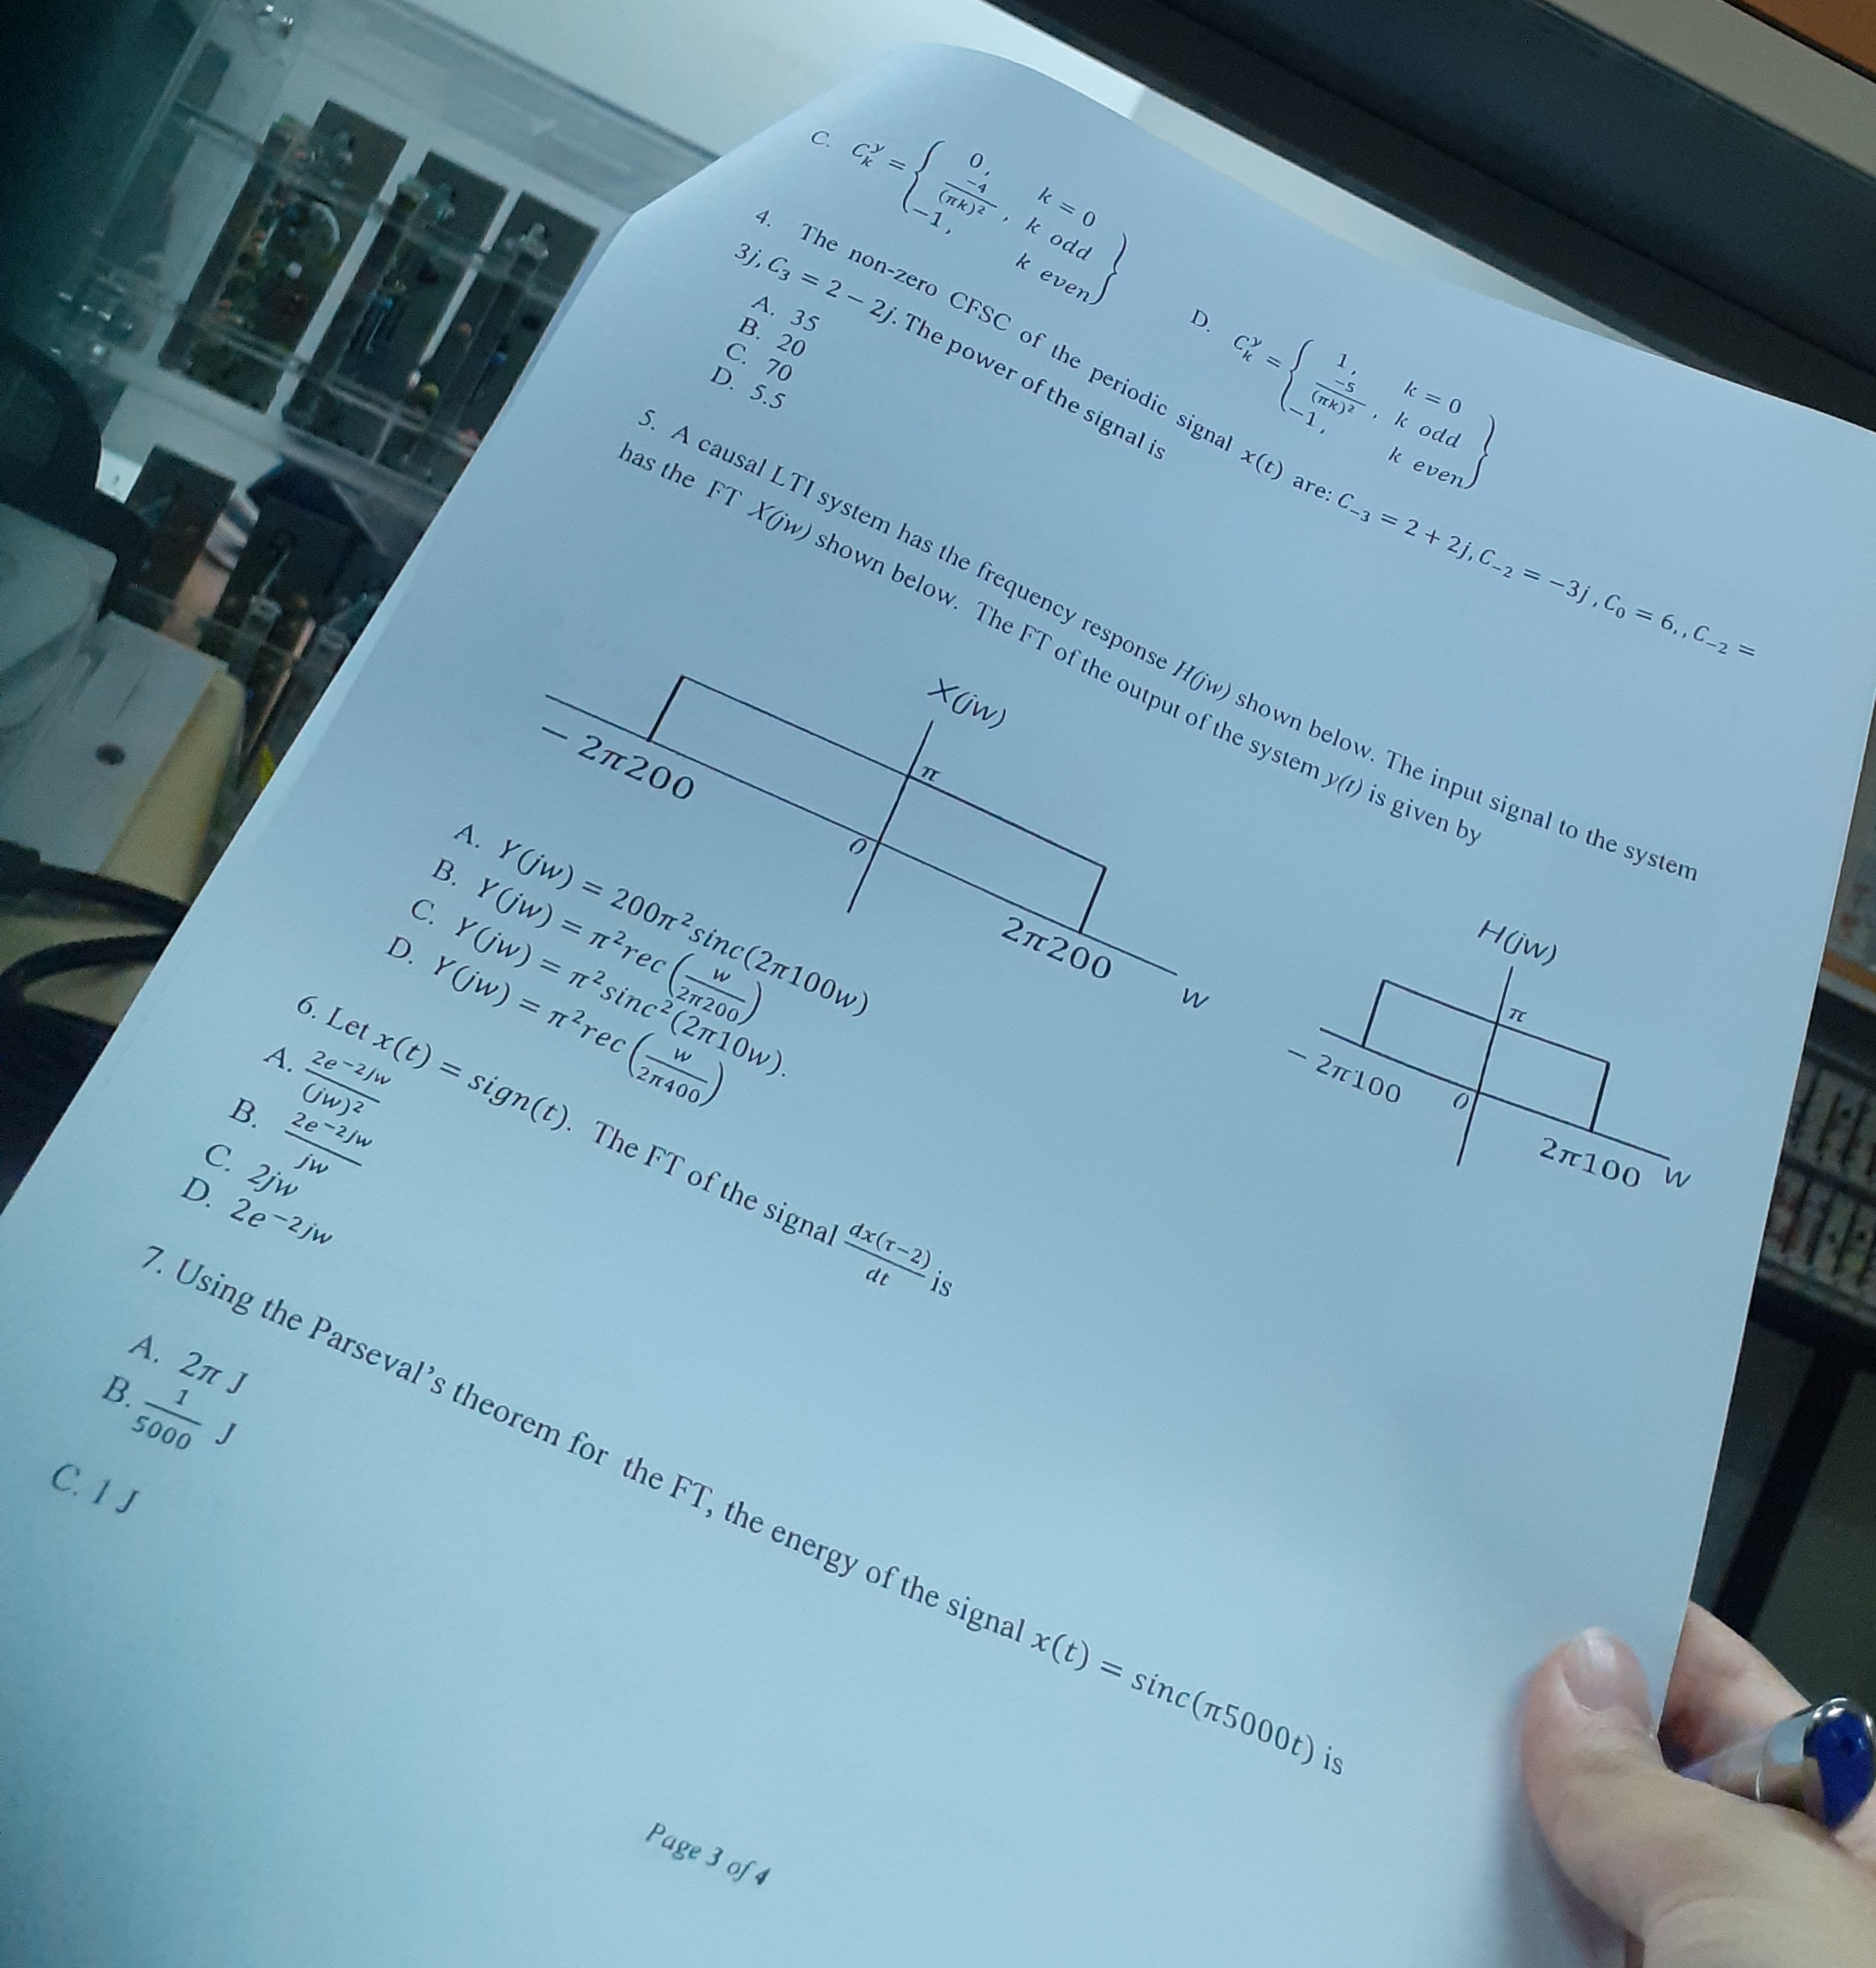 C. C_k^y = { 0, k = 0
-4/(πk)², k odd
-1, k even }
D. C_k^y = { 1, k = 0
-5/(πk)², k odd
-1, k even }
4. The non-zero CFSC of the periodic signal x(t) are: C₋₃ = 2 + 2j, C₋₂ = -3j , C₀ = 6, , C₋₂ =
3j, C₃ = 2 - 2j. The power of the signal is
A. 35
B. 20
C. 70
D. 5.5
5. A causal LTI system has the frequency response H(jw) shown below. The input signal to the system
has the FT X(jw) shown below. The FT of the output of the system y(t) is given by
X(jw)
π
0
- 2π200
2π200
w
H(jw)
π
0
- 2π100
2π100
w
A. Y(jw) = 200π²sinc(2π100w)
B. Y(jw) = π²rec(w/2π200)
C. Y(jw) = π²sinc²(2π10w).
D. Y(jw) = π²rec(w/2π400)
6. Let x(t) = sign(t). The FT of the signal dx(τ-2)/dt is
A. 2e^{-2jw}/(jw)²
B. 2e^{-2jw}/jw
C. 2jw
D. 2e^{-2jw}
7. Using the Parseval's theorem for the FT, the energy of the signal x(t) = sinc(π5000t) is
A. 2π J
B. 1/5000 J
C. 1 J
Page 3 of 4